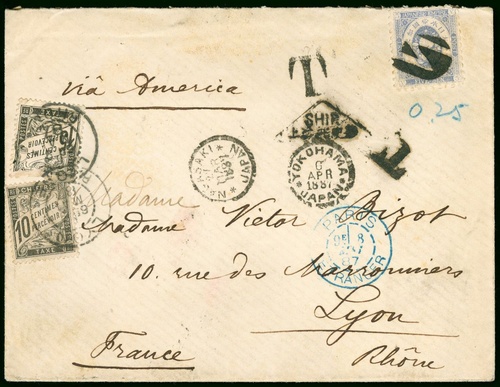 T
S
viâ America
0.25
SHIP
T
15
CENTIMES
A PERCEVOIR
NAGASAKI
JAPAN
YOKOHAMA
6
APR
1887
JAPAN
10
CENTIMES
A PERCEVOIR
TAXE
Madame
Madame Victor Bizot
PARIS
ETRANGER
10. rue des Marronniers
Lyon
France
Rhône